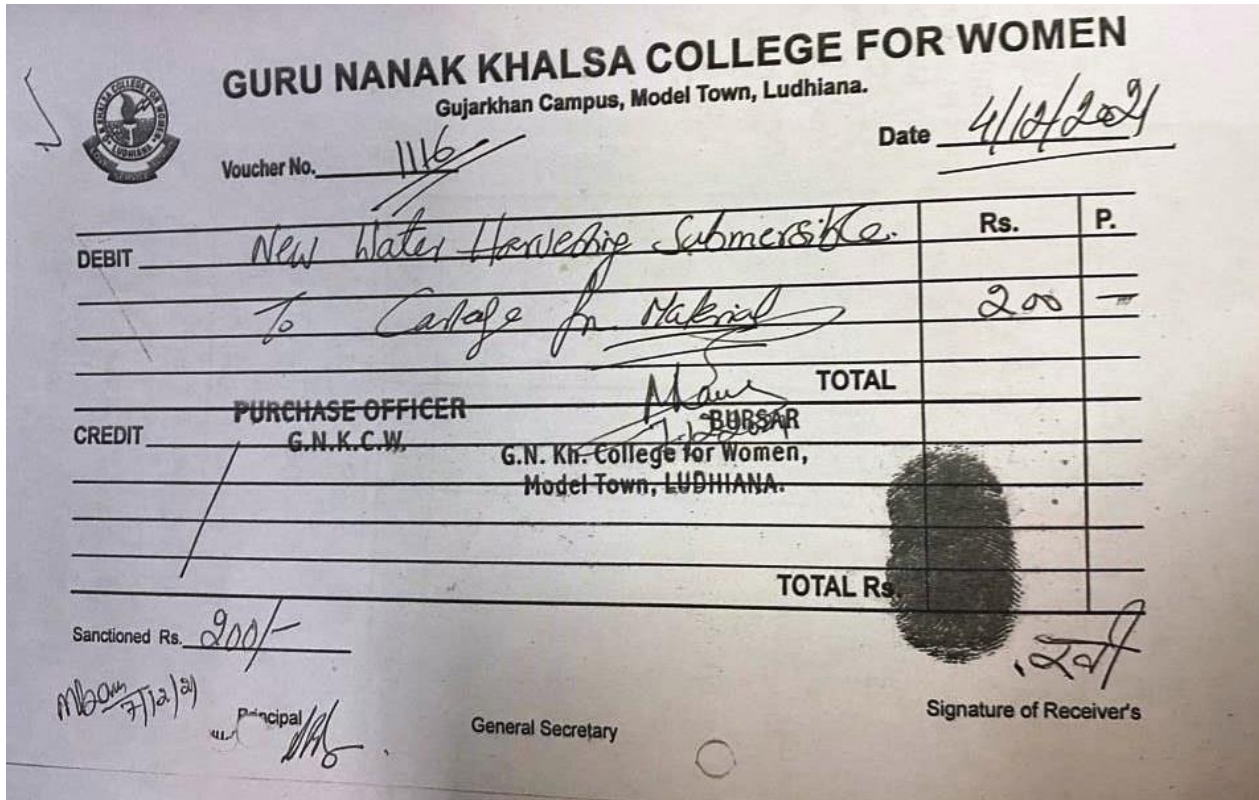 GURU NANAK KHALSA COLLEGE FOR WOMEN
Gujarkhan Campus, Model Town, Ludhiana.
Voucher No. 1116
Date 4/12/2021
Rs. P.
DEBIT New Water Harvesting Submersible.
To Cartage for Material 200 —
TOTAL
PURCHASE OFFICER
G.N.K.C.W.
BURSAR
CREDIT
G.N. Kh. College for Women,
Model Town, LUDHIANA.
TOTAL Rs.
Sanctioned Rs. 200/-
7/12/21
रवी
Principal
General Secretary
Signature of Receiver's